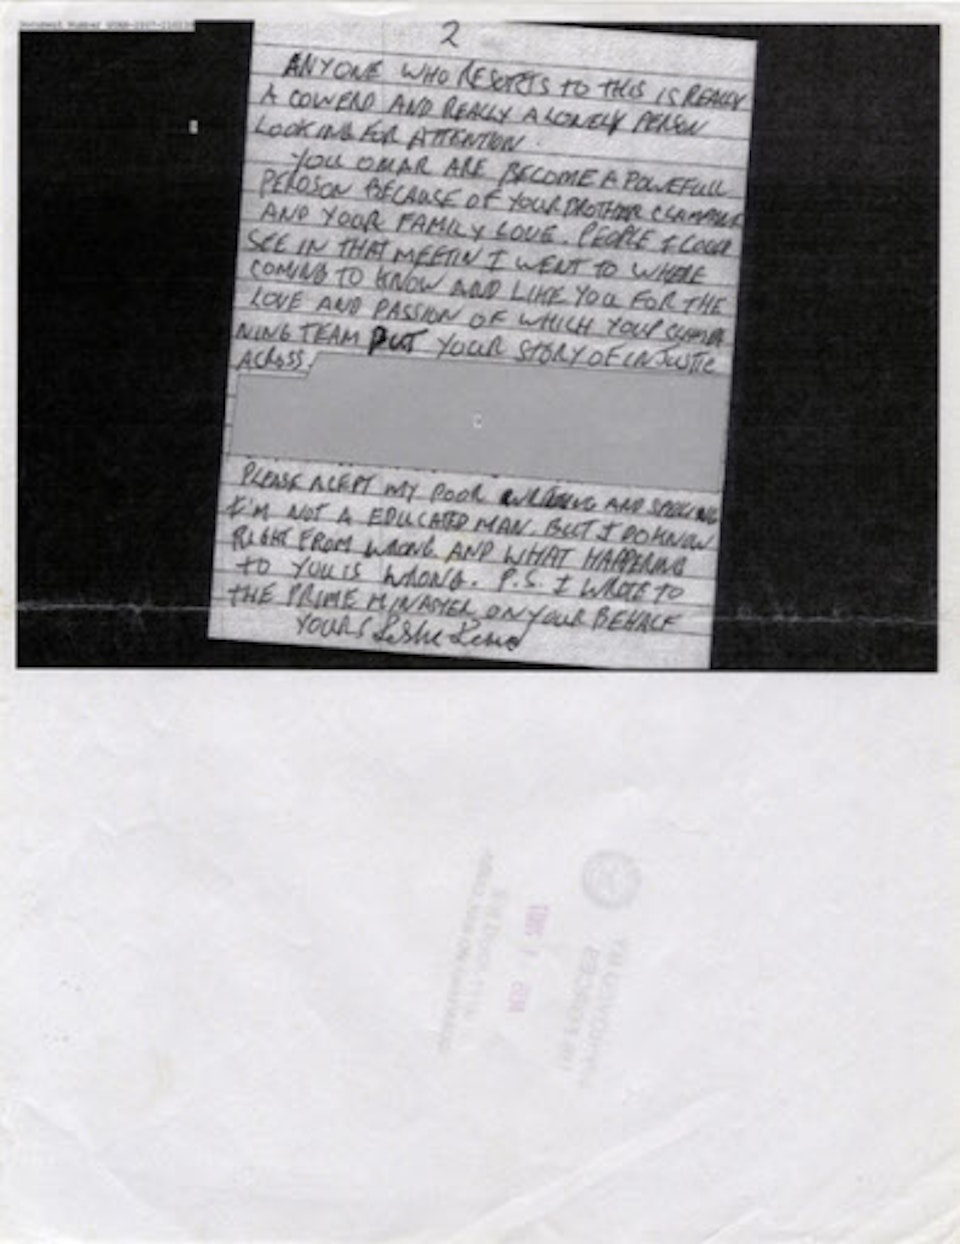 2
ANYONE WHO RESORTS TO THIS IS REALLY
A COWERD AND REALLY A LONELY PERSON
LOOKING FOR ATTENTION.
YOU OMAR ARE BECOME A POWEFULL
PEROSON BECAUSE OF YOUR BROTHER
AND YOUR FAMILY LOVE. PEOPLE I COULD
SEE IN THAT MEETIN I WENT TO WHERE
COMING TO KNOW AND LIKE YOU FOR THE
LOVE AND PASSION OF WHICH YOUR
NING TEAM PUT YOUR STORY OF INJUSTIC
ACROSS,
PLEASE ACEPT MY POOR WRITEING AND
I'M NOT A EDUCATED MAN. BUT I DO KNOW
RIGHT FROM WRONG. AND WHAT HAPPENING
TO YOU IS WRONG. P.S. I WROTE TO
THE PRIME MINASTER ON YOUR BEHALF
YOURS